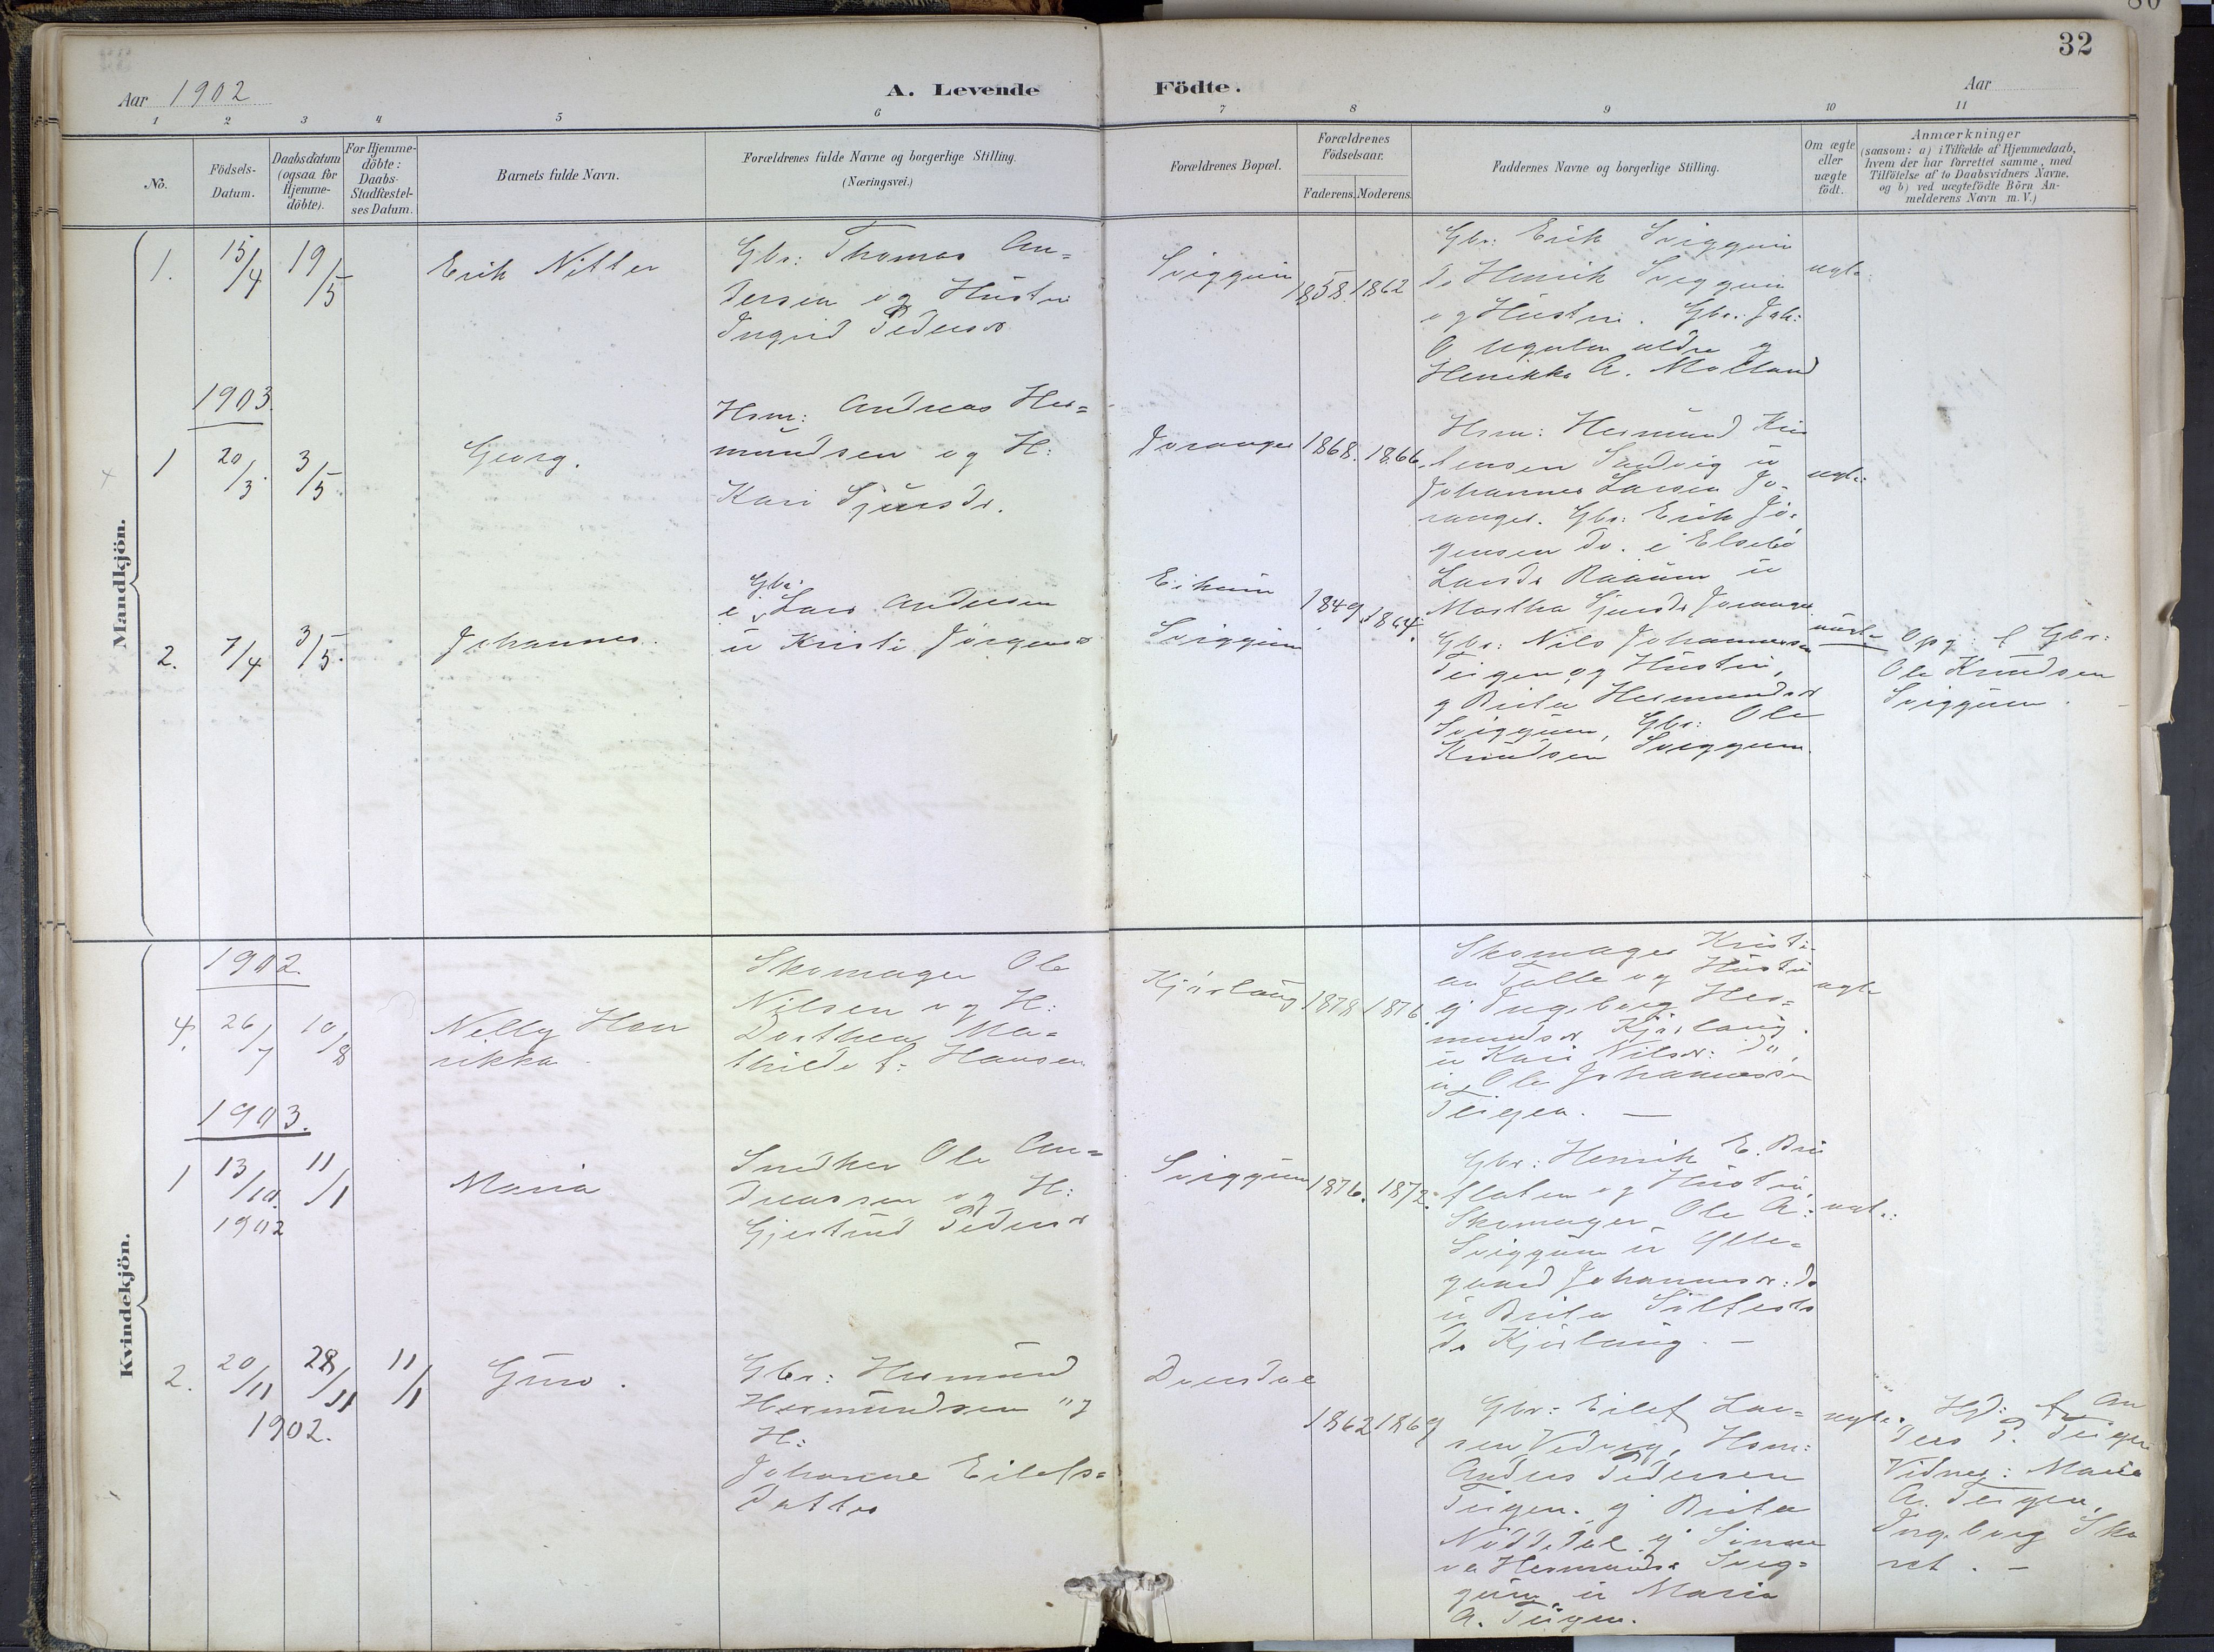 32
Aar 1902
A. Levende Födte.
Aar
1 2 3 4 5 6 7 8 9 10 11
No.
Födsels-
Datum.
Daabsdatum
(ogsaa for
Hjemme-
döbte).
For Hjemme-
döbte:
Daabs-
Stadfæstel-
ses Datum.
Barnets fulde Navn.
Forældrenes fulde Navne og borgerlige Stilling.
(Næringsvei.)
Forældrenes Bopæl.
Forældrenes
Födselsaar.
Faderens. Moderens.
Faddernes Navne og borgerlige Stilling.
Om ægte
eller
uægte
födt.
Anmærkninger
(saasom: a) i Tilfælde af Hjemmedaab,
hvem der har forrettet samme, med
Tilföielse af to Daabsvidners Navne.
og b) ved uægtefödte Börn An-
melderens Navn m. V.)
Mandkjön.
1. 15/4 19/5
Erik Nitter
Gbr: Thomas An=
dersen og Hustru
Ingrid Pedersdr
Sviggum
1858. 1862
Gbr: Erik Sviggum
do Henrik Sviggum
og Hustru. Gbr. Joh:
O. ældre og
Henrikke A. Molland
egte
1903.
1 20/3 3/5.
Georg.
Hsm: Andreas Her=
mundsen og H:
Kari Sjursdr.
Joranger
1868. 1866.
Hsm: Hermund Kris
tensen Sandvig u
Johannes Larsen Jo-
ranger. Gbr: Erik Jör
gensen do. i Elsebö
Larsdr Raaum u
Martha Sjursdr Joranger
egte:
2. 7/4 3/5.
Johannes.
Gbr:
e Lars Andersen
u Kristi Jörgensdr
Eikum
Sviggum
1849. 1864.
Gbr: Nils Johannessen
Teigen og Hustru,
g Brita Hermundsdr
Sviggum, Gbr: Ole
Knudsen Sviggum.
uægte
Opg: f Gbr:
Ole Knudsen
Sviggum.
Kvindekjön.
1902.
4. 26/7 10/8
Nelly Hen
rikka.
Skomager Ole
Nilsen og H:
Dorthea Ma=
thilde f. Hansen
Kjörlaug
1878 1876
Skomager Kristi
an Talle og Hustru
g Ingeborg Her=
mundsdr Kjörlaug.
u Kari Nilsdr: do,
u Ole Johannessen
Teigen. —
egte
1903.
1 13/10. 11/1
1902
Maria
Snedker Ole An=
dreassen og H:
Gjertrud Pedersdr
Sviggum
1876. 1872.
Gbr: Henrik E. Bri
flaten og Hustru,
Skomager Ole A:
Sviggum u Olle=
gaard Johannesdr: do
u Brita Solfests
dr Kjörlaug. —
egt.:
2. 20/11 28/11 11/1
1902.
Guro.
Gbr: Hermund
Hermundsen og
H:
Johanne Eilefs=
datter
Dumdal
1862 1869
Gbr: Eilef Lar=
sen Vedvig, Hsm:
Anders Pedersen
Teigen. g Brita
Nöddedal g Sönne
va Hermundsdr Svig=
gum, u Maria
A. Teigen.
egte.
Hjd: f An
ders P. Teigen
Vidner: Maria
A. Teigen,
Ingeborg Ska
ret. —